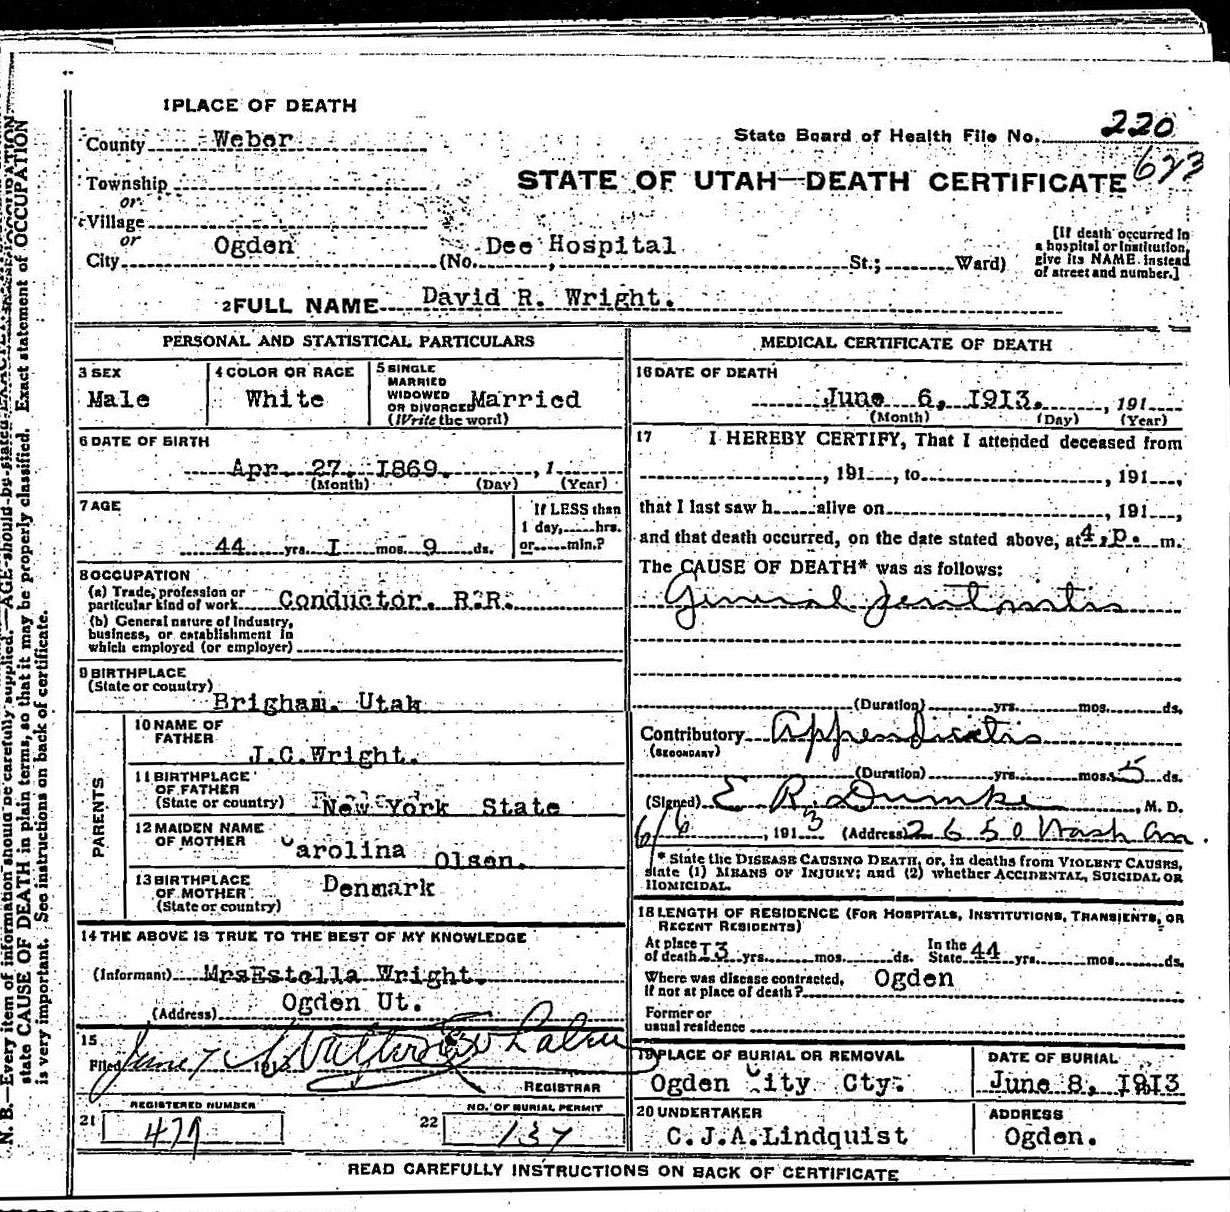 1 PLACE OF DEATH
County Weber
State Board of Health File No. 220
623
Township
or
STATE OF UTAH—DEATH CERTIFICATE
Village
or
City Ogden (No. Dee Hospital St.; Ward)
[If death occurred in
a hospital or institution,
give its NAME instead
of street and number.]
2 FULL NAME David R. Wright.
PERSONAL AND STATISTICAL PARTICULARS
3 SEX
Male
4 COLOR OR RACE
White
5 SINGLE
MARRIED
WIDOWED
OR DIVORCED Married
(Write the word)
6 DATE OF BIRTH
Apr. 27, I869. , 1
(Month) (Day) (Year)
7 AGE
44 yrs. I mos. 9 ds.
If LESS than
1 day, hrs.
or min.?
8 OCCUPATION
(a) Trade, profession or
particular kind of work Conductor. R.R.
(b) General nature of Industry,
business, or establishment in
which employed (or employer)
9 BIRTHPLACE
(State or country)
Brigham. Utah
PARENTS
10 NAME OF
FATHER
J.C.Wright.
11 BIRTHPLACE
OF FATHER
(State or country) New York State
12 MAIDEN NAME
OF MOTHER Carolina Olsen.
13 BIRTHPLACE
OF MOTHER Denmark
(State or country)
14 THE ABOVE IS TRUE TO THE BEST OF MY KNOWLEDGE
(Informant) MrsEstella Wright.
Ogden Ut.
(Address)
15
Filed June 7 191
REGISTRAR
REGISTERED NUMBER
21 479
NO. OF BURIAL PERMIT
22 137
MEDICAL CERTIFICATE OF DEATH
16 DATE OF DEATH
June 6, I913. , 191
(Month) (Day) (Year)
17 I HEREBY CERTIFY, That I attended deceased from
, 191 , to , 191 ,
that I last saw h alive on , 191 ,
and that death occurred, on the date stated above, at 4.p. m.
The CAUSE OF DEATH* was as follows:
General
(Duration) yrs. mos. ds.
Contributory Appendicitis
(SECONDARY)
(Duration) yrs. mos. 5 ds.
(Signed) E R. Dumke , M. D.
6/6 , 1913 (Address) 2650 Wash
* State the DISEASE CAUSING DEATH, or, in deaths from VIOLENT CAUSES,
state (1) MEANS OF INJURY; and (2) whether ACCIDENTAL, SUICIDAL OR
HOMICIDAL.
18 LENGTH OF RESIDENCE (FOR HOSPITALS, INSTITUTIONS, TRANSIENTS, OR
RECENT RESIDENTS)
At place
of death I3 yrs. mos. ds.
In the
State 44 yrs. mos. ds.
Where was disease contracted, Ogden
If not at place of death?
Former or
usual residence
19 PLACE OF BURIAL OR REMOVAL
Ogden City Cty.
DATE OF BURIAL
June 8, I9I3
20 UNDERTAKER
C.J.A.Lindquist
ADDRESS
Ogden.
READ CAREFULLY INSTRUCTIONS ON BACK OF CERTIFICATE
N. B.—Every item of information should be carefully supplied. AGE should be stated EXACTLY.
state CAUSE OF DEATH in plain terms, so that it may be properly classified. Exact statement of OCCUPATION
is very important. See instructions on back of certificate.